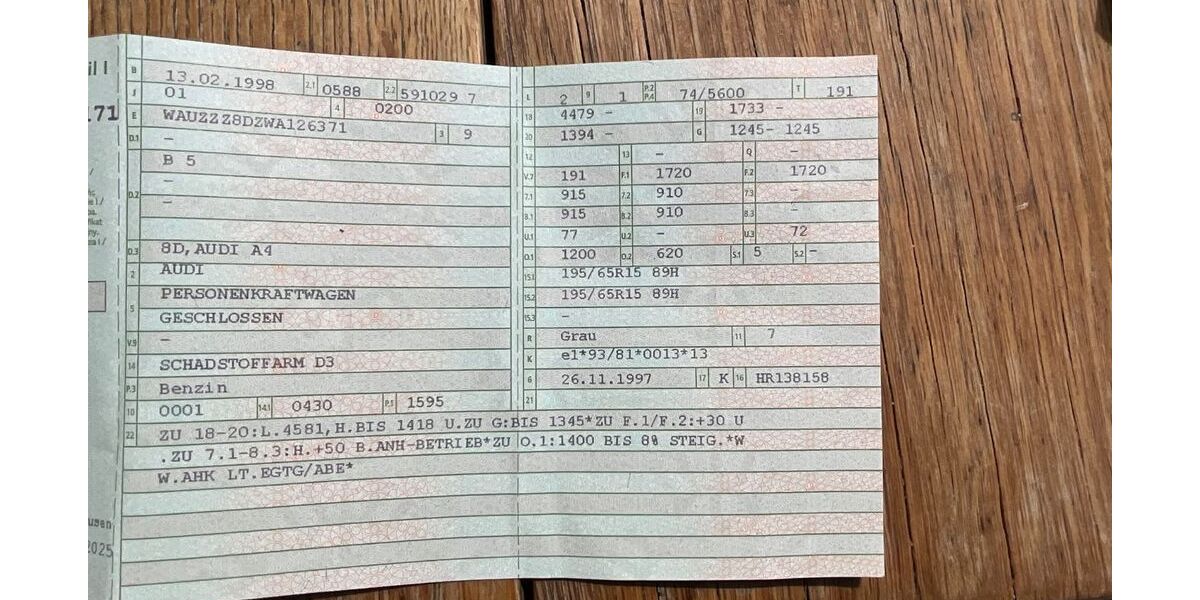 il I
171
usen
2025
B 13.02.1998 2.1 0588 2.2 591029 7
J 01 4 0200
E WAUZZZ8DZWA126371 3 9
D.1 –
B 5
D.2 –
–
D.3 8D,AUDI A4
2 AUDI
5 PERSONENKRAFTWAGEN
GESCHLOSSEN
V.9 –
14 SCHADSTOFFARM D3
P.3 Benzin
10 0001 14.1 0430 P.1 1595
L 2 9 1 P.2 P.4 74/5600 T 191
18 4479 – 19 1733 –
20 1394 – G 1245- 1245
12 13 – Q –
V.7 191 F.1 1720 F.2 1720
7.1 915 7.2 910 7.3 –
8.1 915 8.2 910 8.3 –
U.1 77 U.2 – U.3 72
O.1 1200 O.2 620 S.1 5 S.2 –
15.1 195/65R15 89H
15.2 195/65R15 89H
15.3 –
R Grau 11 7
K e1*93/81*0013*13
6 26.11.1997 17 K 16 HR138158
21
22 ZU 18-20:L.4581,H.BIS 1418 U.ZU G:BIS 1345*ZU F.1/F.2:+30 U
.ZU 7.1-8.3:H.+50 B.ANH-BETRIEB*ZU O.1:1400 BIS 8% STEIG.*W
W.AHK LT.EGTG/ABE*